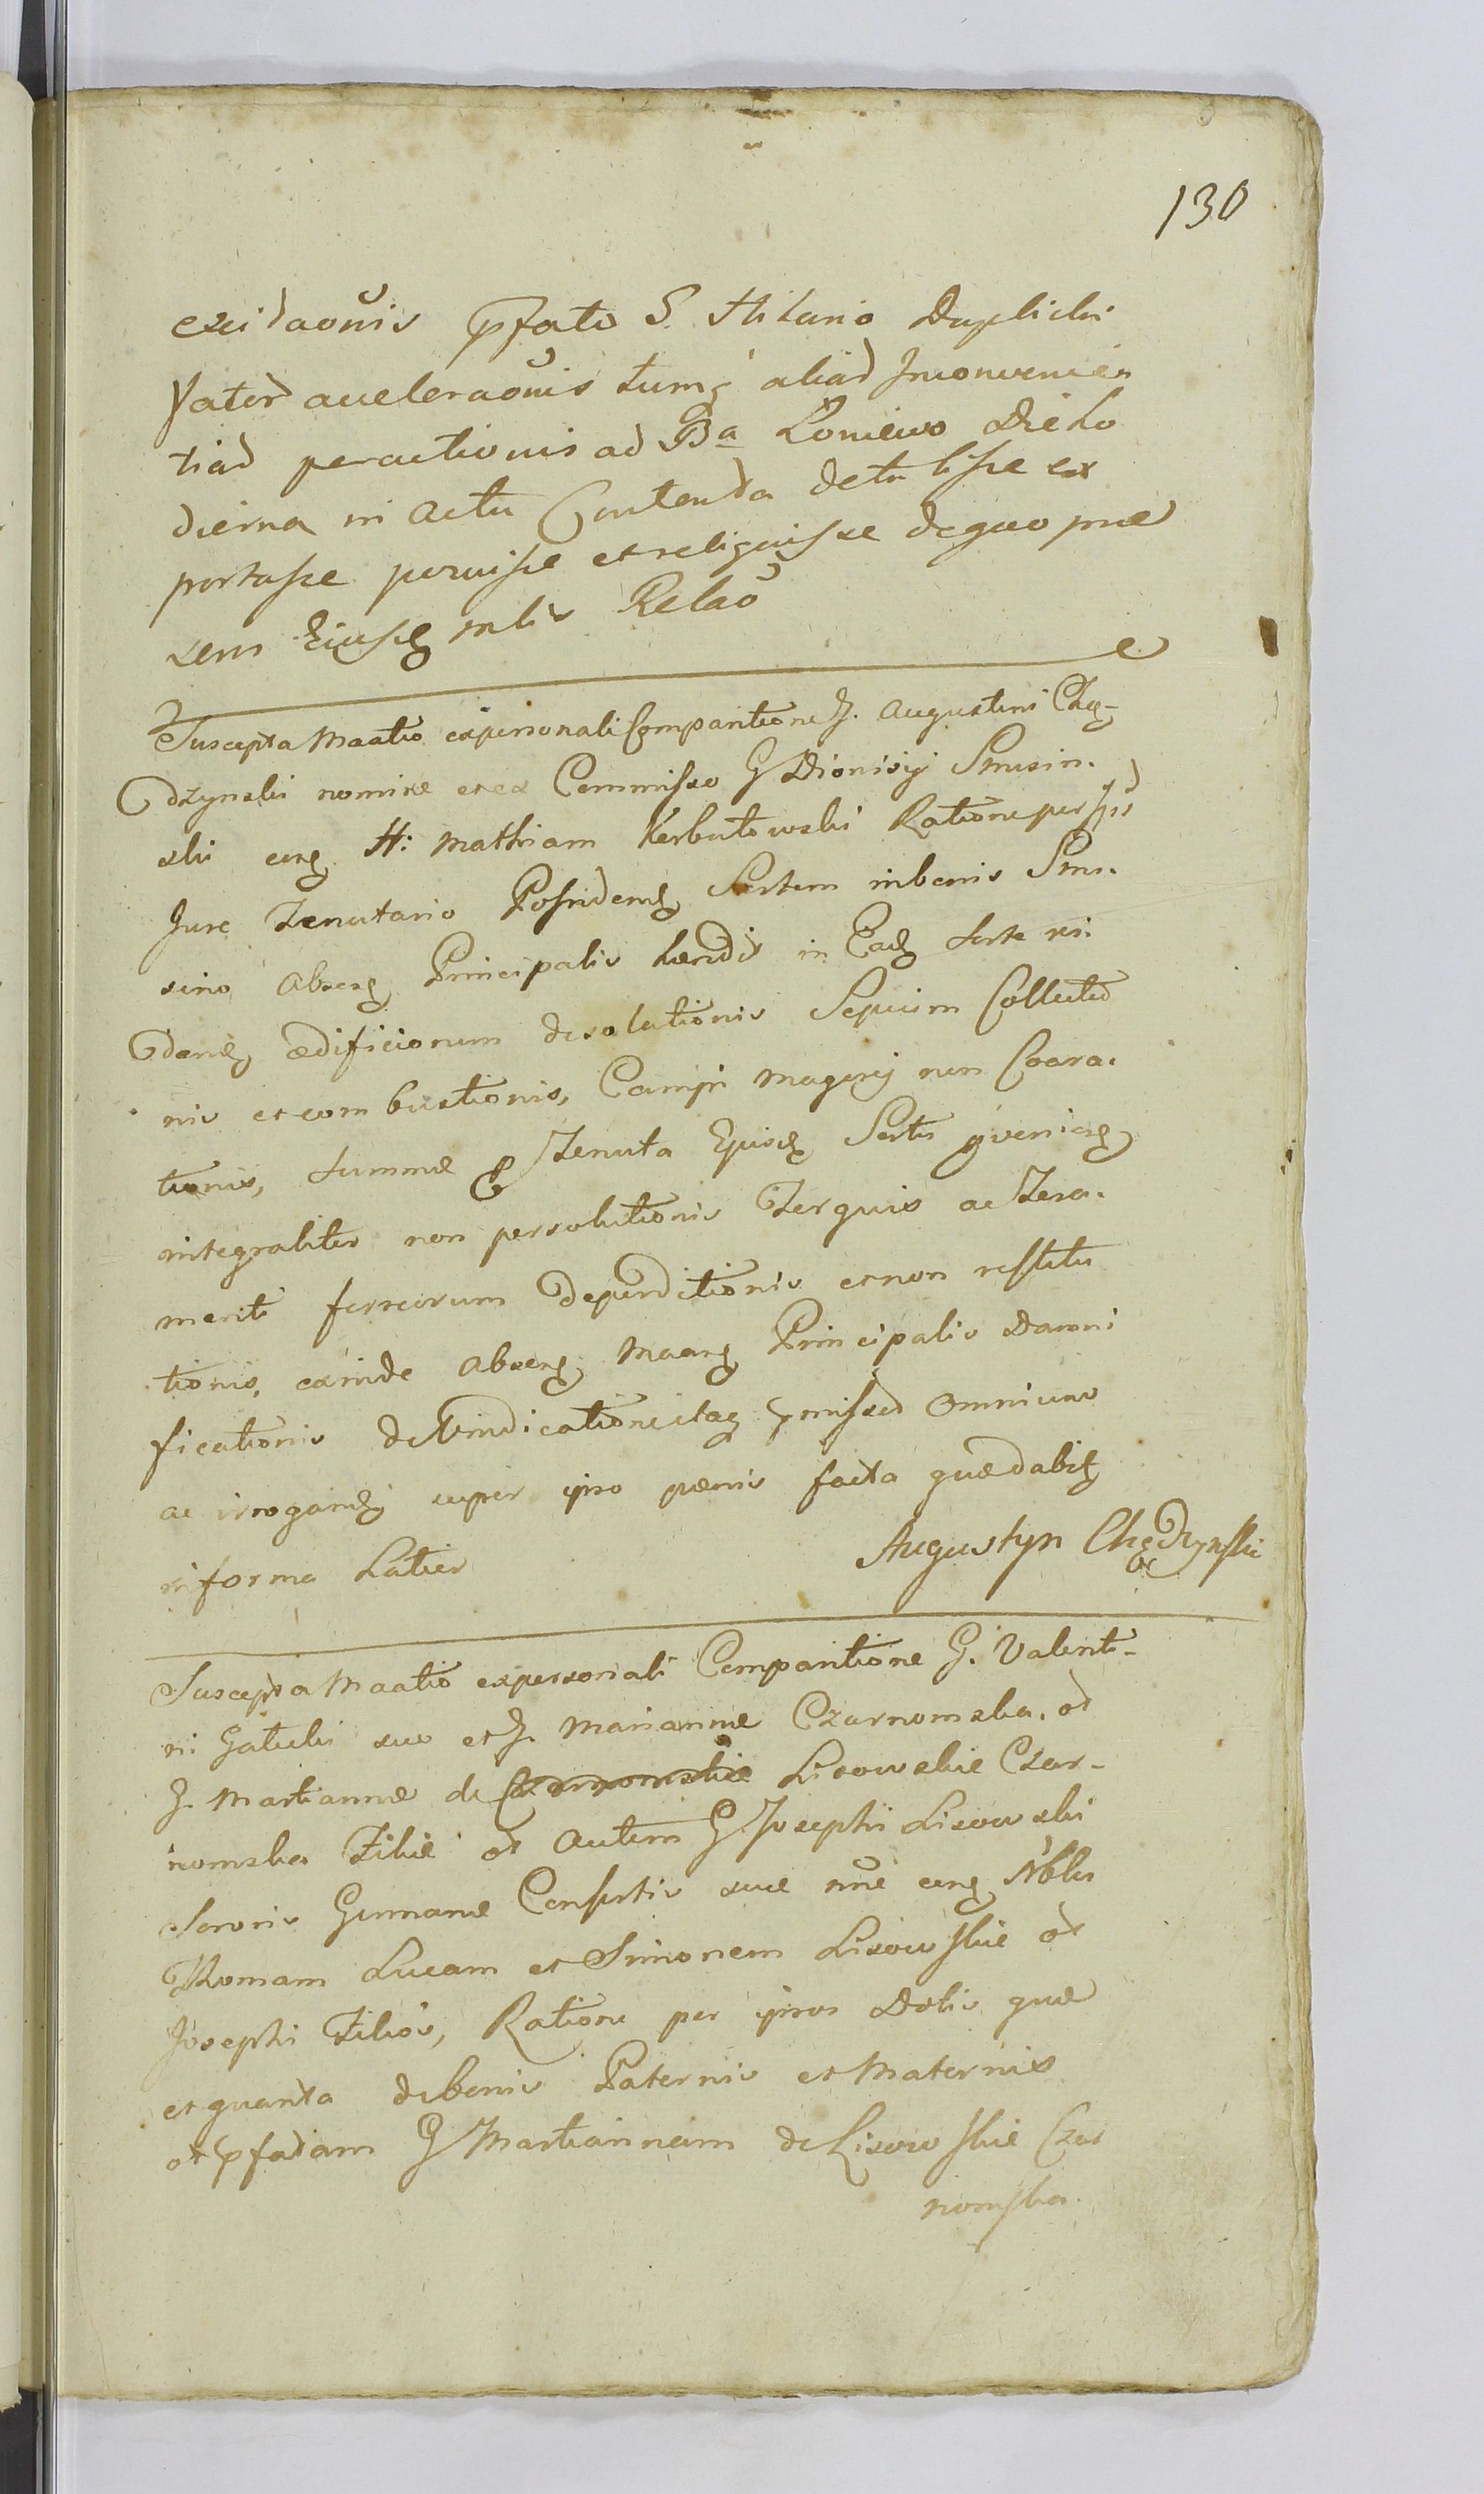 130
exeidaõnis pfato S. Hilario Duplicis
Vater acceleraõnis tumq aliad Inconvenien
tiad peractionis ad Ba Loniewo Die Ho
dierna in Actu Contenda detulisse ex
portasse posuisse et reliquisse de quo præ
sens Eiusq mlis Relaõ
Suscepta Maatio ex personali Comparitione G. Augustini Chą-
dzynski nomine et ex Commisso G Dionisij Smusin.
ski ctrg H: Mathiam Kerbutowski Ratione per
Jure Tenutario Possidenlg Sortem in bonis Smu.
sino Absenlg Principalis hæredis in Eadg Sorte resi.
denlg ædificiorum desolationis Sepium Collectio
nis et combustionis, Campi magerij non Coara.
tionis, summæ p Tenuta Eiusdg Sortis pvenieng
integraliter non persolutionis Ferguis ac Fera.
menti ferreorum deperditionis et non restitu
tionis, exinde Absenlg Maang Principalis Damni
ficationis de Vindicatione itaq pmissad omnium
ac irrogandg super ipso pœnis facta quædabilg
in forma Latior
Augustyn Chądzynski
Suscepta Maatio ex personali Comparitione G. Valenti-
ni Gatuski suo et G. Mariannæ Czarnomska, od
G. Martiannæ de Czarnomskie Lisowskie Czar-
nomska Filiæ od Autem G Josephi Lisowski
Sororis Germanæ Consortis suæ nñe ctrg Nbles
Thomam Lucam et Simonem Lisowskie od
Josephi Filios, Ratione per ipsos Dotis quæ
et quanta de bonis Paternis et Maternis
od pfadam G Martiannam de Lisowskie Czar
nomska.